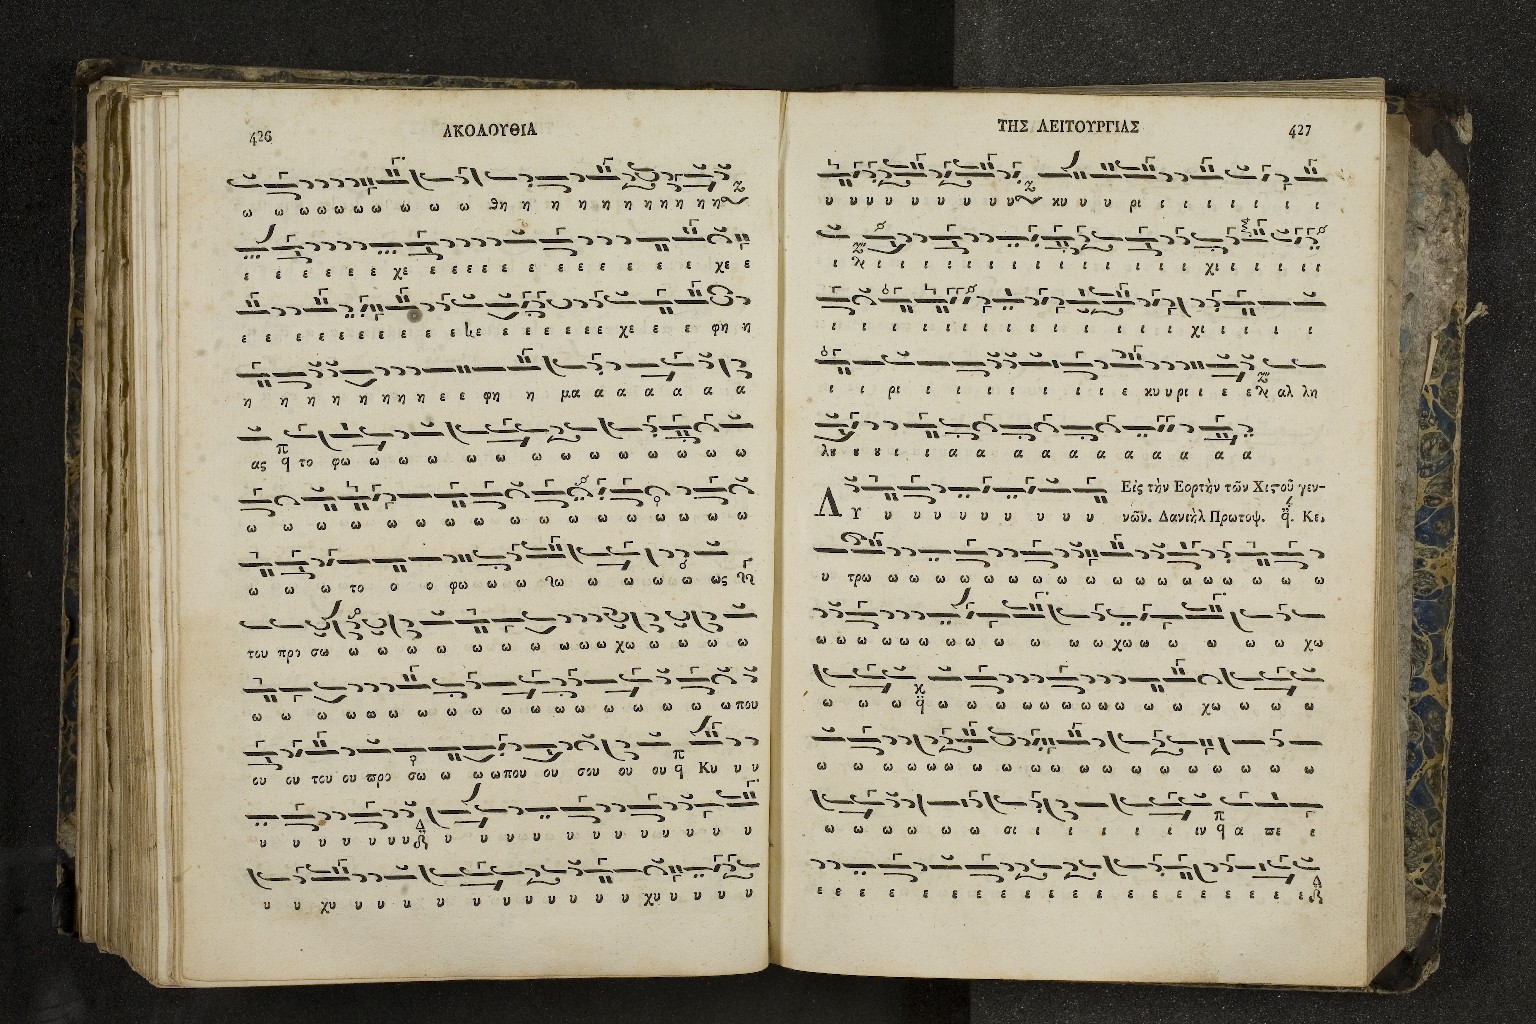 426
ΑΚΟΛΟΥΘΙΑ
ω ω ω ω ω ω ω ω ω ω θη η η η η η η η η η η
ε ε ε ε ε ε χε ε ε ε ε ε ε ε ε ε ε ε χε ε
ε ε ε ε ε ε ε ε ε ε ε ε ε ε ε ε χε ε ε φη η
η η η η η η η η ε ε φη η μα α α α α α α
ας το φω ω ω ω ω ω ω ω ω ω ω ω ω ω
ω ω ω ω ω ω ω ω ω ω ω ω ω ω ω ω
ω ω ω το ο ο φω ω ω ω ω ω ω ω ω ως
του προ σω ω ω ω ω ω ω ω ω ω ω ω χω ω ω ω ω
ω ω ω ω ω ω ω ω ω ω ω ω ω ω ω ω ω που
ου ου του ου προ σω ω ω ω που ου σου ου ου Κυ υ υ
υ υ υ υ υ υ υ υ υ υ υ υ υ υ υ υ υ υ
υ υ χυ υ υ υ υ υ υ υ υ υ υ χυ υ υ υ υ
ΤΗΣ ΛΕΙΤΟΥΡΓΙΑΣ
427
υ υ υ υ υ υ υ υ υ υ κυ υ υ ρι ι ι ι ι ι ι
ι ι ι ι ι ι ι ι ι ι ι ι ι χι ι ι ι ι ι
ι ι ι ι ι ι ι ι ι ι ι ι ι ι ι χι ι ι ι ι
ι ι ρι ι ι ι ι ι ι ι ε κυ υ ρι ι ε ε αλ λη
λυ υ υ ι ι α α α α α α α α α α α
Λυ υ υ υ υ υ υ υ υ Εἰς τὴν Εορτὴν τῶν Χιςοῦ γεν-
νῶν. Δανιὴλ Πρωτοψ. Κε,
υ τρω ω ω ω ω ω ω ω ω ω ω ω ω ω ω ω ω ω
ω ω ω ω ω ω ω ω ω ω ω ω ω χω ω ω ω ω ω χω
ω ω ω ω ω ω ω ω ω ω ω ω ω χω ω ω ω
ω ω ω ω ω ω ω ω ω ω ω ω ω ω ω ω
ω ω ω ω ω ω σι ι ι ι ι ι ιν α πε ι
ε ε ε ε ε ε ε ε ε ε ε ε ε ε ε ε ε ε